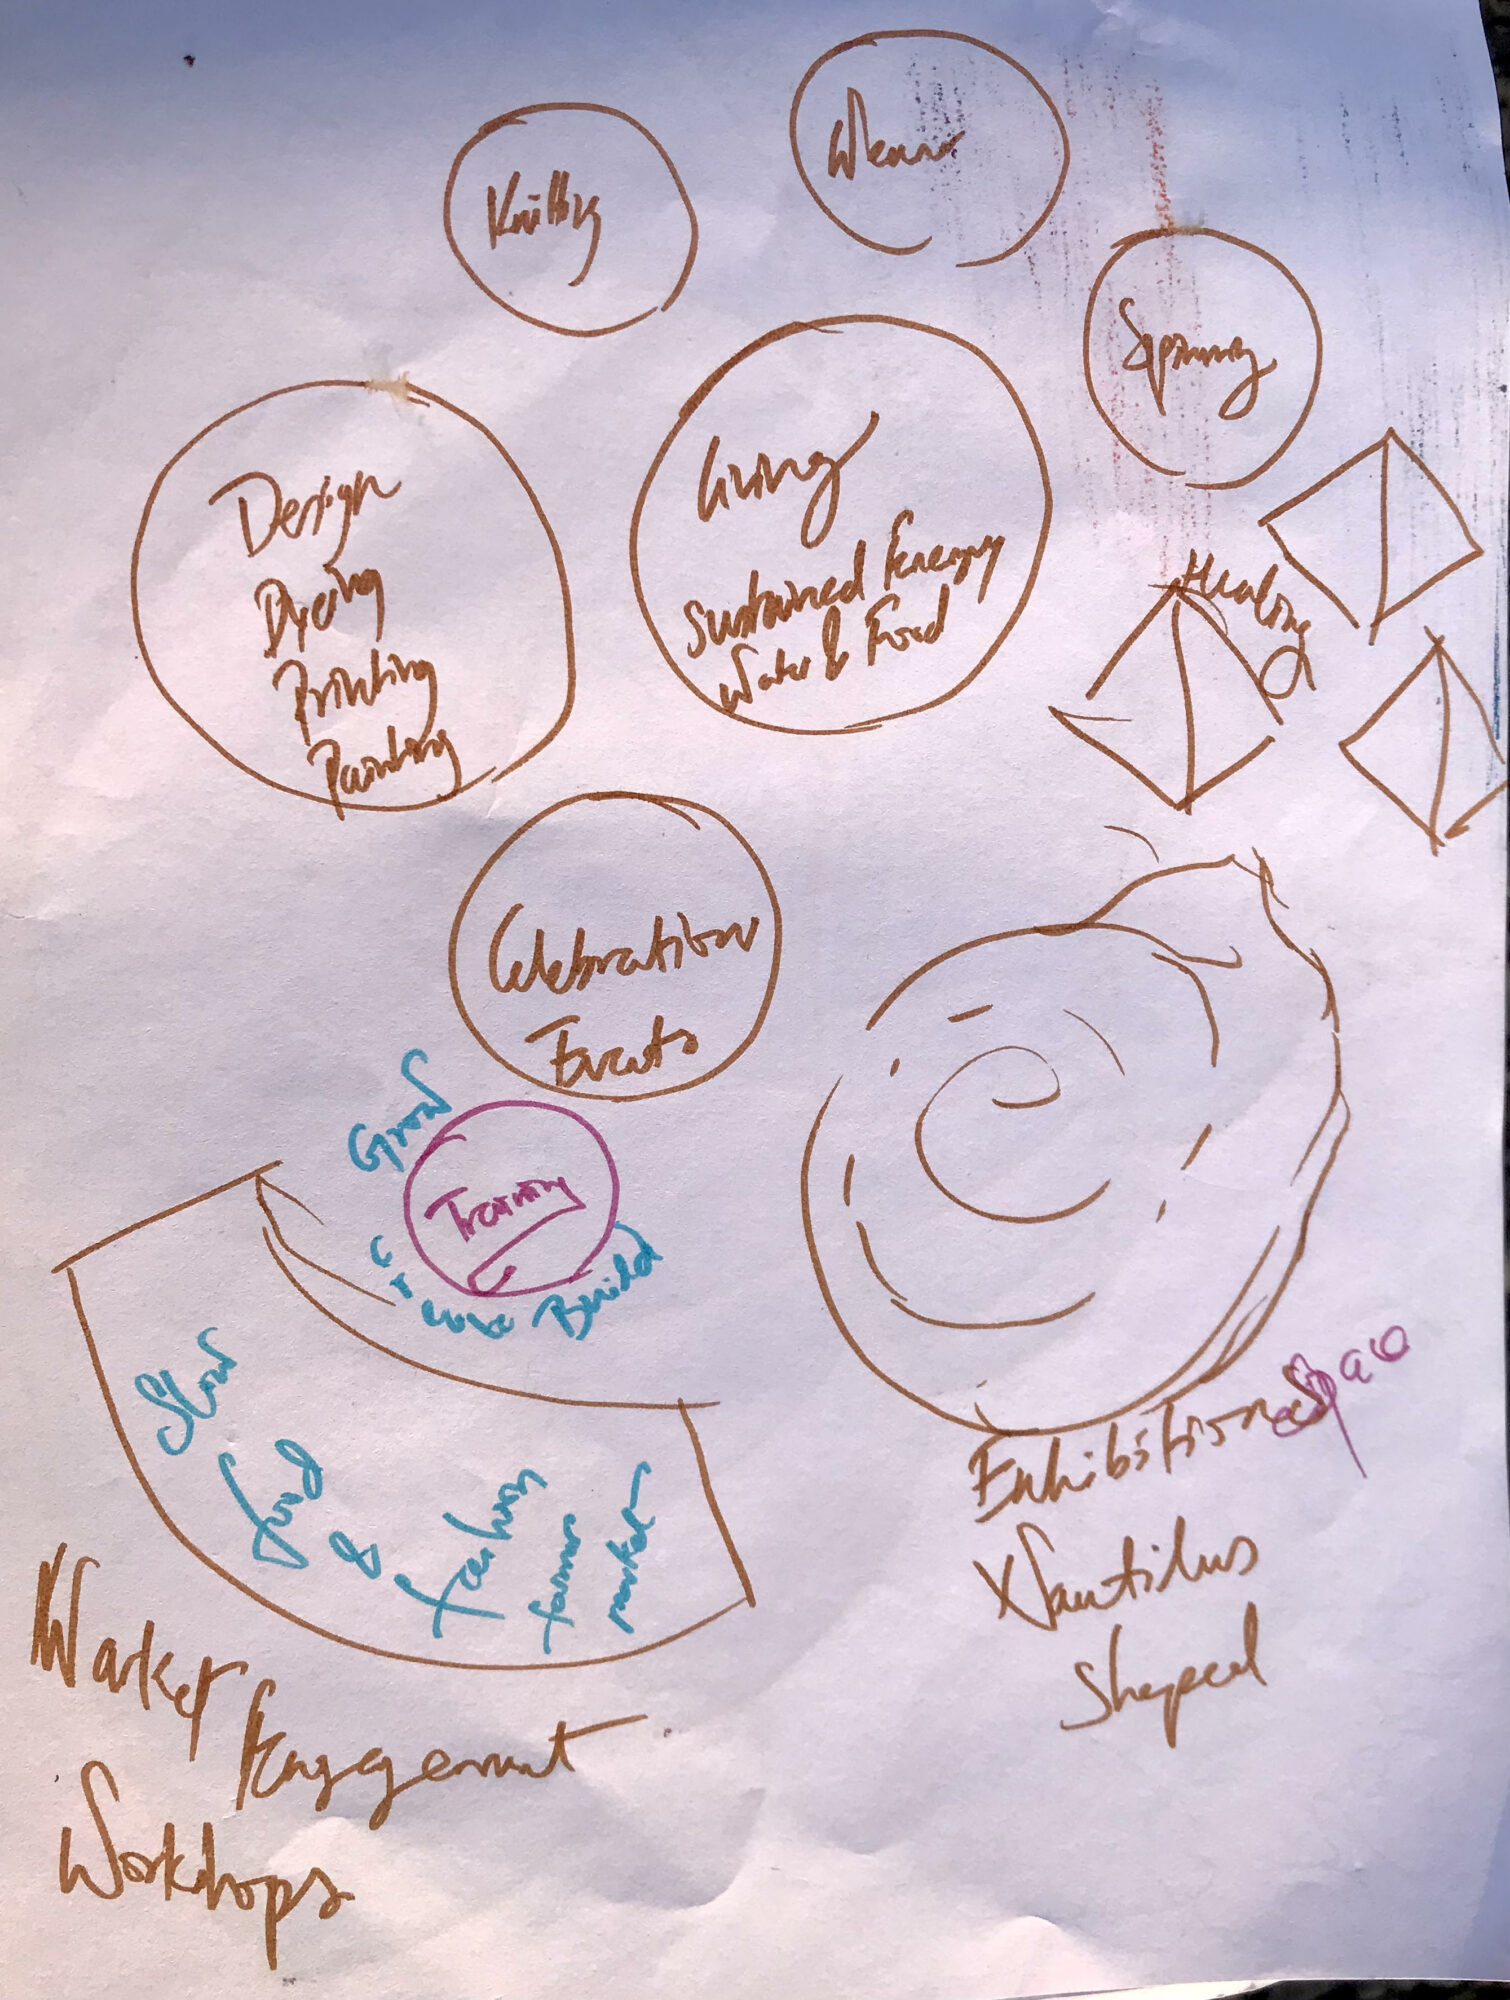 Knitting
Spinning
Design
Dyeing
Printing
Painting
Living
Sustained Energy
Water & Food
Healing
Celebration
Events
Grow
Training
Build
Slow
food
&
fashion
farmers
market
Market
Engagement
Workshops
Exhibition Space
Nautilus
Shaped